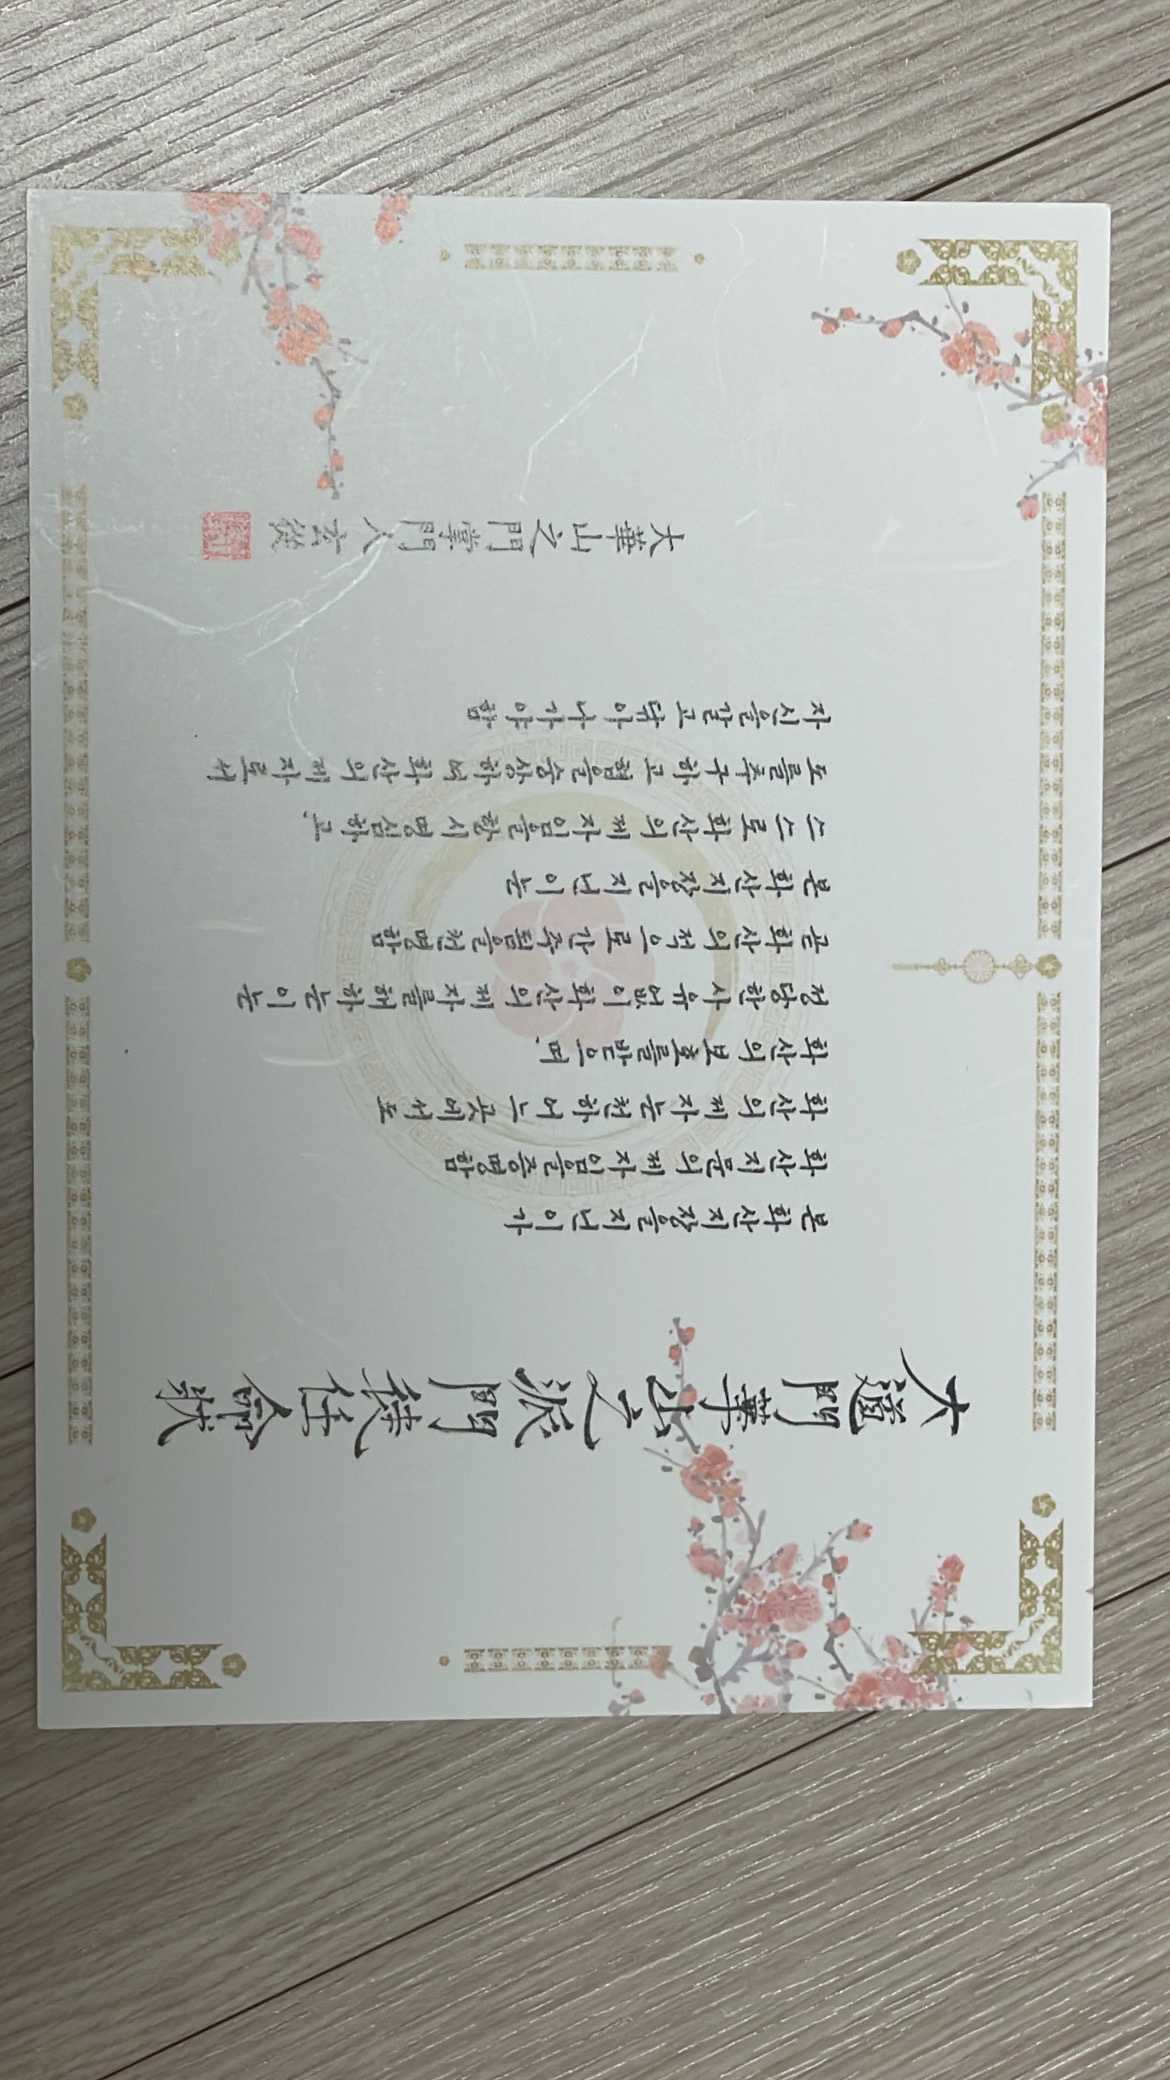 大 門華山之派門 任命狀
본 화산지장을 지닌 이가
화산지문의 제자임을 증명함
화산의 제자는 천하 어느 곳에서도
화산의 보호를 받으며,
정당한 사유 없이 화산의 제자를 해하는 이는
곧 화산의 적으로 간주됨을 천명함
본 화산지장을 지닌 이는
스스로 화산의 제자임을 항시 명심하고,
도를 추구하고 협을 숭상하며 화산의 제자로서
자신을 갈고 닦아 나가야 함
大華山之門掌門人 玄從